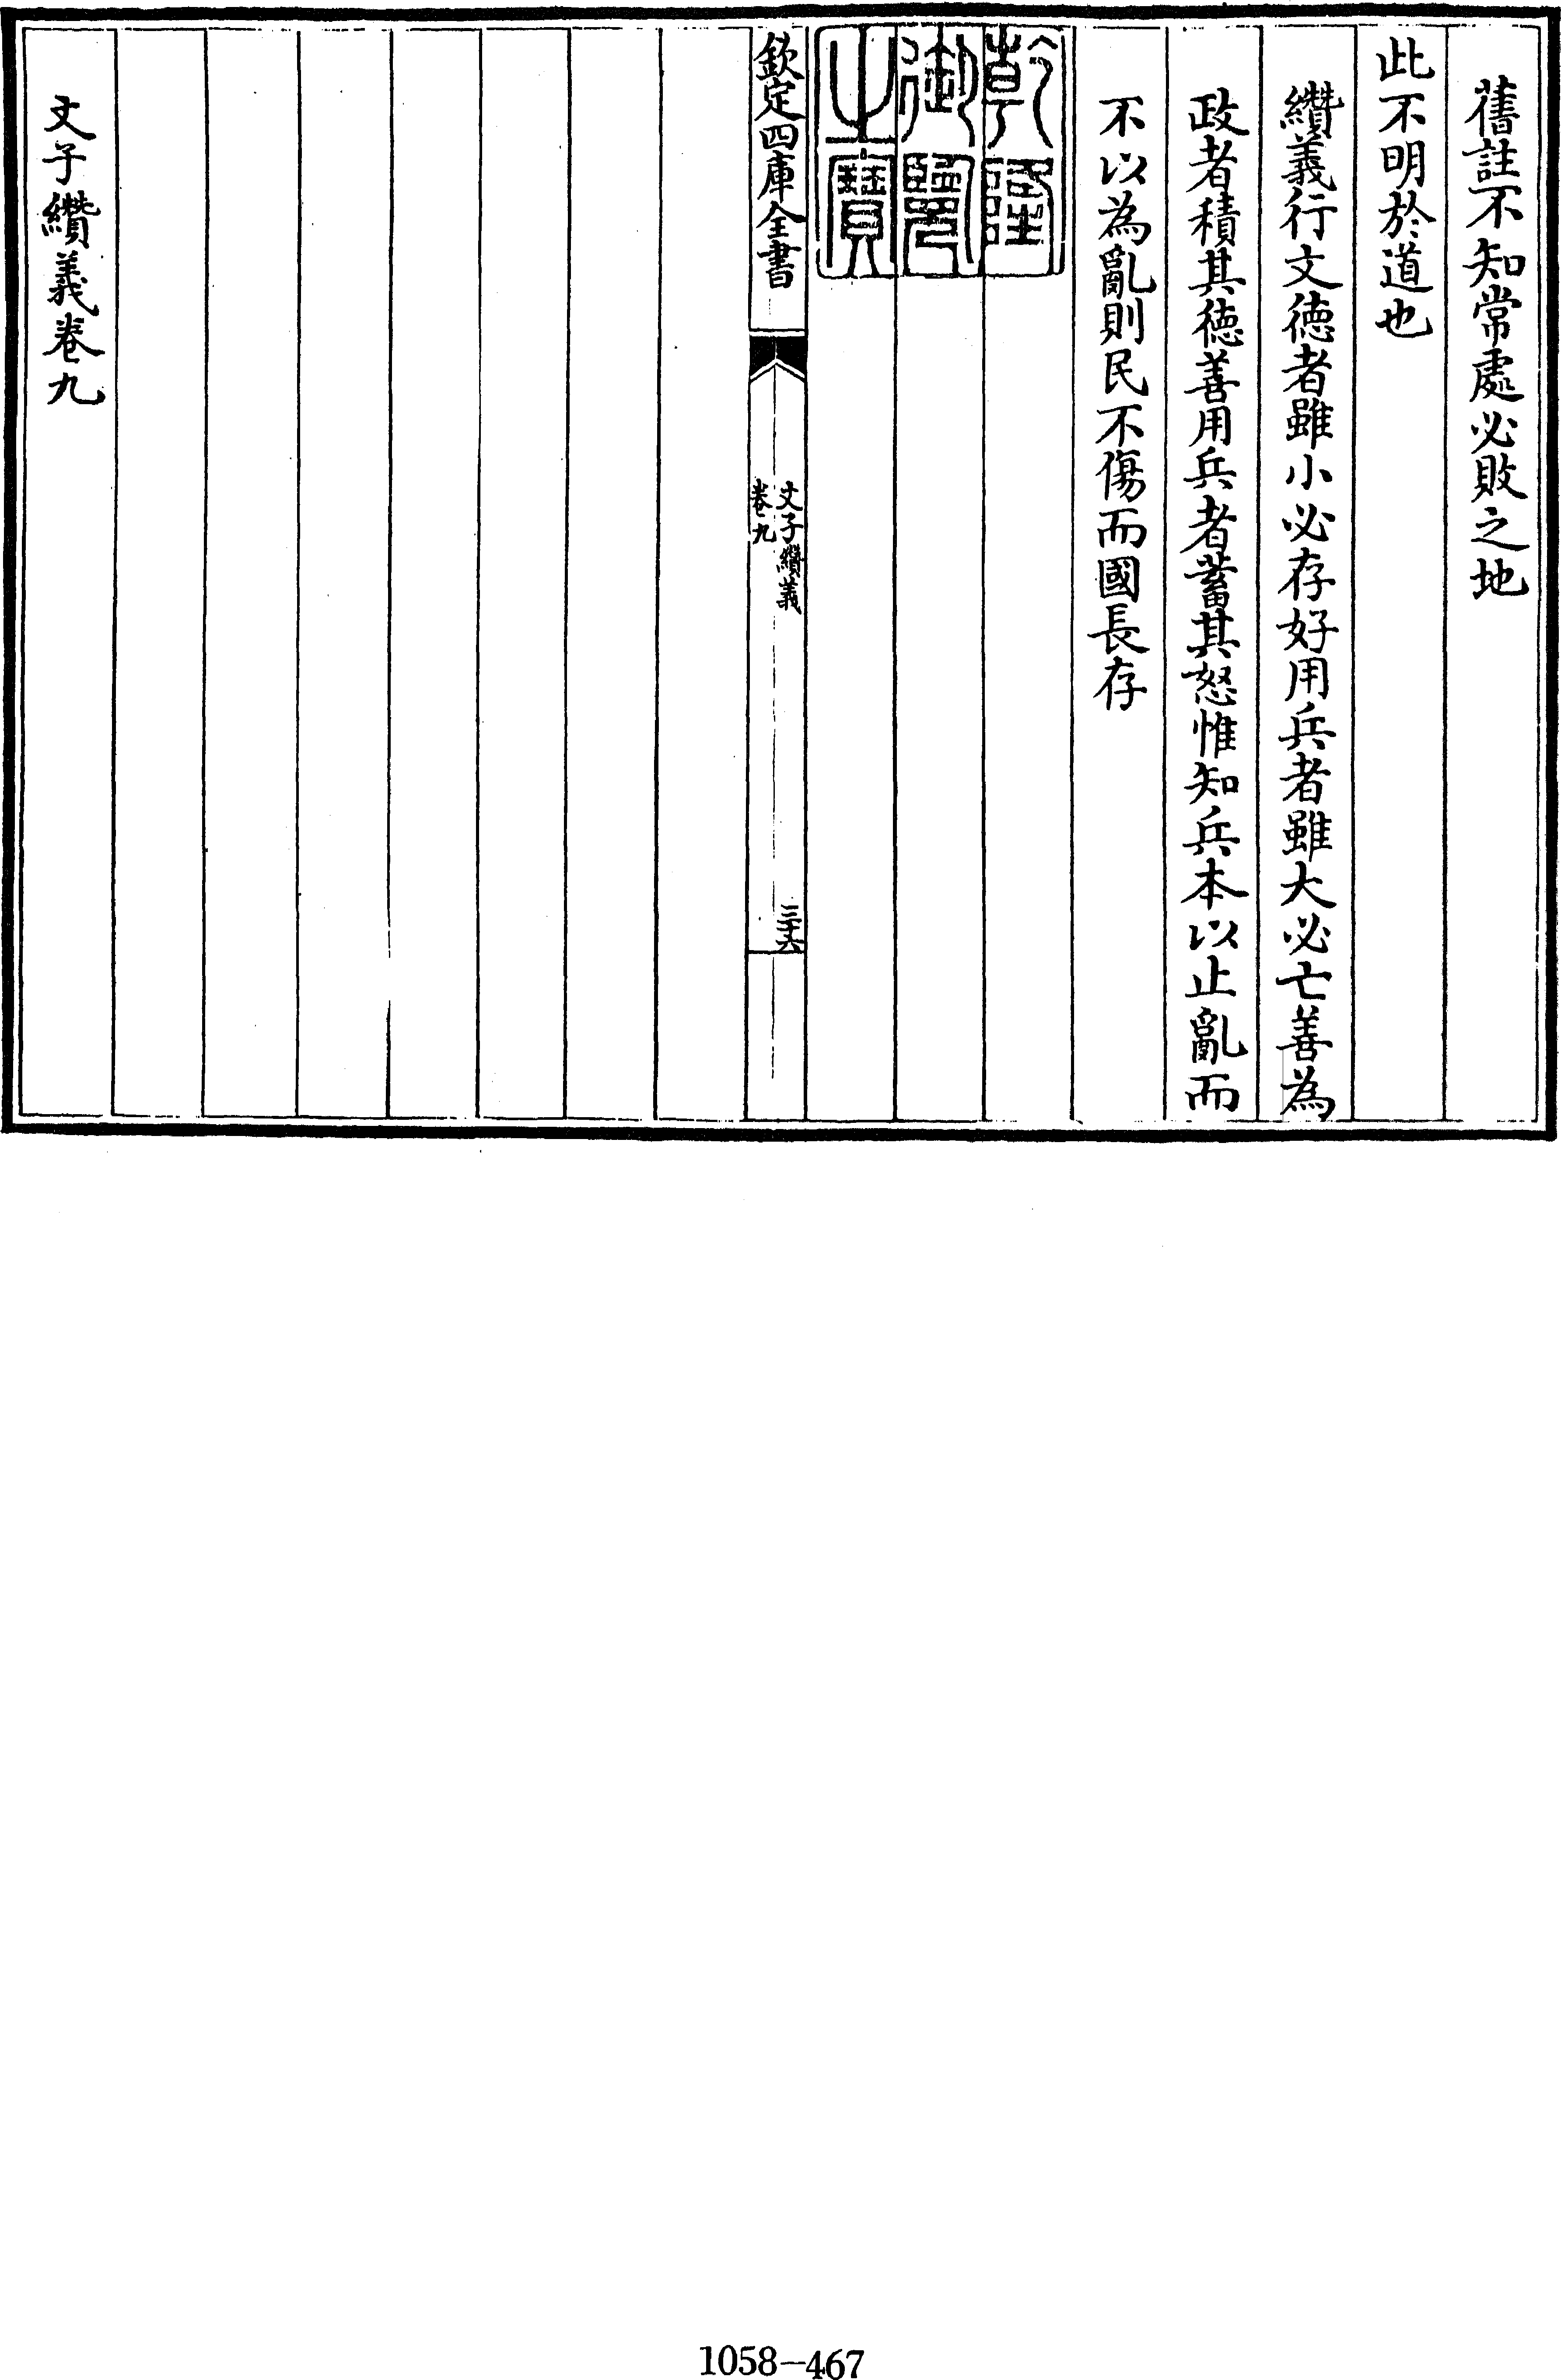 舊註不知常處必敗之地
此不明於道也
纘義行文徳者雖小必存好用兵者雖大必亡善為
政者積其徳善用兵者蓄其怒惟知兵本以止亂而
不以為亂則民不傷而國長存
乾隆
御覽
之寶
欽定四庫全書
文子纘義
卷九
三十六
文子纘義卷九
1058-467